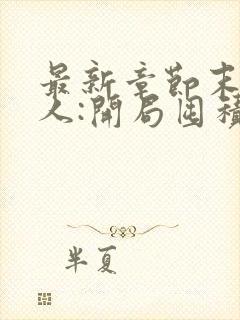 最新章节末
人:開局囤積
半夏